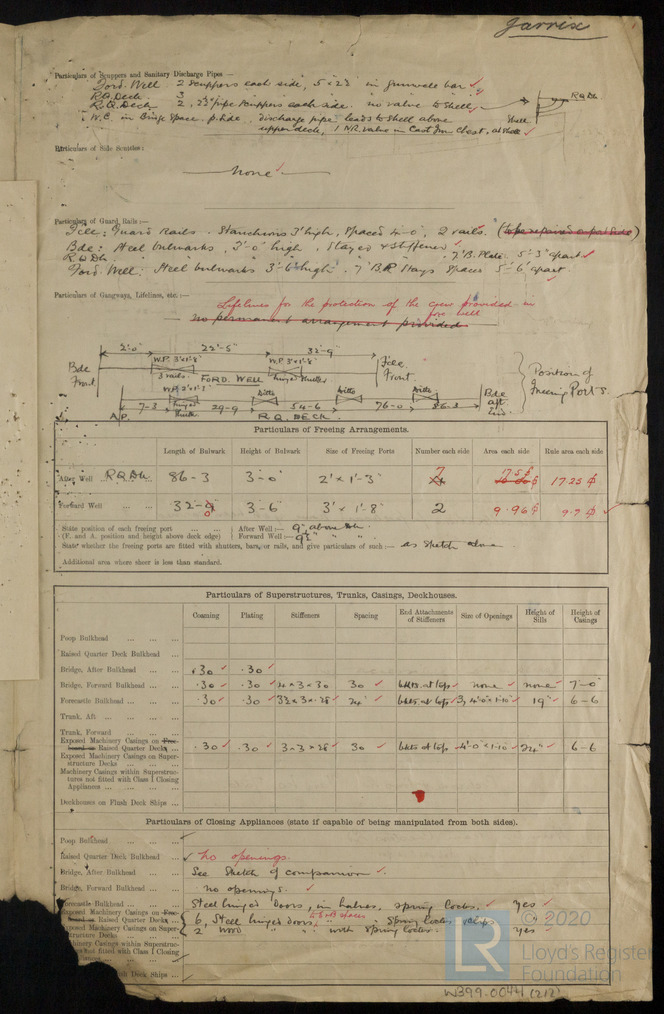 Jarrix
Particulars of Scuppers and Sanitary Discharge Pipes —
Ford. Well. 2 scuppers each side, 5 x 2½ in gunwale bar
R.Q. Deck 3
R.Q. Deck 2, 2½" pipe scuppers each side. no valve to shell
R.Q. Dk
Shell
W.C. in Bridge Space. p. side. discharge pipe leads to shell above
upper deck, 1 N.R. valve in Cast Iron Chest, at shell
Particulars of Side Scuttles:
None
Particulars of Guard Rails:—
Fcle: Guard rails. Stanchions 3' high, spaced 4'-0", 2 rails. (to be repaired on port side)
Bde: Steel bulwarks, 3'-0" high, Stayed & stiffened
R.Q. Dk. 7" B. Plate 5'-3" apart
Ford. Well: Steel bulwarks 3'-6" high. 7" B.P. Stays spaced 5'-6" apart.
Particulars of Gangways, Lifelines, etc.:—
Lifelines for the protection of the crew provided in
fore well
no permanent arrangement provided
2'-0" 22'-5" 32-9"
Bde Front
W.P. 3' x 1'-8" W.P. 3' x 1'-8"
3 rails. FORD. WELL hinged shutter
Fcle Front.
Position of Freeing Ports.
W.P. 2' x 1'-3" ditto ditto ditto
hinged shutter
A.P. 7-3 29-9 54-6 76-0 86-3
R.Q. DECK.
Bde aft. End.
Particulars of Freeing Arrangements.
Length of Bulwark Height of Bulwark Size of Freeing Ports Number each side Area each side Rule area each side
After Well R.Q. Dk 86-3 3-0" 2' x 1'-3" 7 17.5 17.25
Forward Well 32-0 3-6" 3' x 1'-8" 2 9.96 9.7
State position of each freeing port ... ... After Well:— 9" above dk.
(F. and A. position and height above deck edge) Forward Well:— 9½" " "
State whether the freeing ports are fitted with shutters, bars, or rails, and give particulars of such:— as sketch above
Additional area where sheer is less than standard.
Particulars of Superstructures, Trunks, Casings, Deckhouses.
Coaming Plating Stiffeners Spacing End Attachments of Stiffeners Size of Openings Height of Sills Height of Casings
Poop Bulkhead ... ... ...
Raised Quarter Deck Bulkhead ...
Bridge, After Bulkhead ... ... .30 .30
Bridge, Forward Bulkhead ... ... .30 .30 4 x 3 x 30 30 bkts. at tops none none 7-0
Forecastle Bulkhead ... ... ... .30 .30 3½ x 3 x .28 24" bkts at tops 3, 4'-0" x 1'-10" 19" 6-6
Trunk, Aft ... ... ... ...
Trunk, Forward ... ... ...
Exposed Machinery Casings on Raised Quarter Decks ... .30 .30 3 x 3 x 28 30 bkts at top 4'-0" x 1-10" 24" 6-6
Exposed Machinery Casings on Superstructure Decks ... ... ...
Machinery Casings within Superstructures not fitted with Class 1 Closing Appliances ... ... ... ...
Deckhouses on Flush Deck Ships ...
Particulars of Closing Appliances (state if capable of being manipulated from both sides).
Poop Bulkhead ... ... ...
Raised Quarter Deck Bulkhead ... no openings.
Bridge, After Bulkhead ... ... See Sketch of companion
Bridge, Forward Bulkhead ... ... no openings.
Forecastle Bulkhead ... ... ... Steel hinged Doors, in halves, spring locks. yes
Exposed Machinery Casings on Raised Quarter Decks 6, Steel hinged doors, " Spring locks & clips
Exposed Machinery Casings on Superstructure Decks 2 wood " " with Spring locks. yes
Machinery Casings within Superstructures not fitted with Class 1 Closing
Deck Ships ...
© 2020
LR
Lloyd's Register
Foundation
W399-0044 (212)